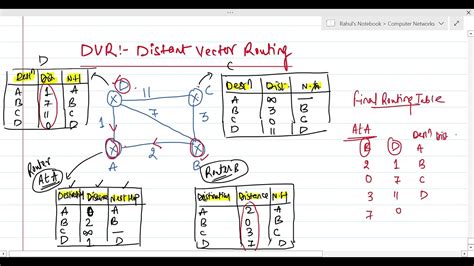 Rahul's Notebook > Computer Networks
DVR!- Distant Vector Routing
D
Dest^n Dist. N.H
A 1 A
B 7 B
C 11 C
D 0 D
C
Dest^n Dist. N.H
A ∞ —
B 3 B
C 0 C
D 11 D
11
7
1
3
2
A
B
D
C
Router
At A
Router B
Destination Distance Next Hop
A 0 A
B 2 B
C ∞ —
D 1 D
Destination Distance N.H
A 2 A
B 0 B
C 3 C
D 7 D
Final Routing Table
At A
B D Dest^n Dist.
2 1 A
0 7 B
3 11 C
7 0 D